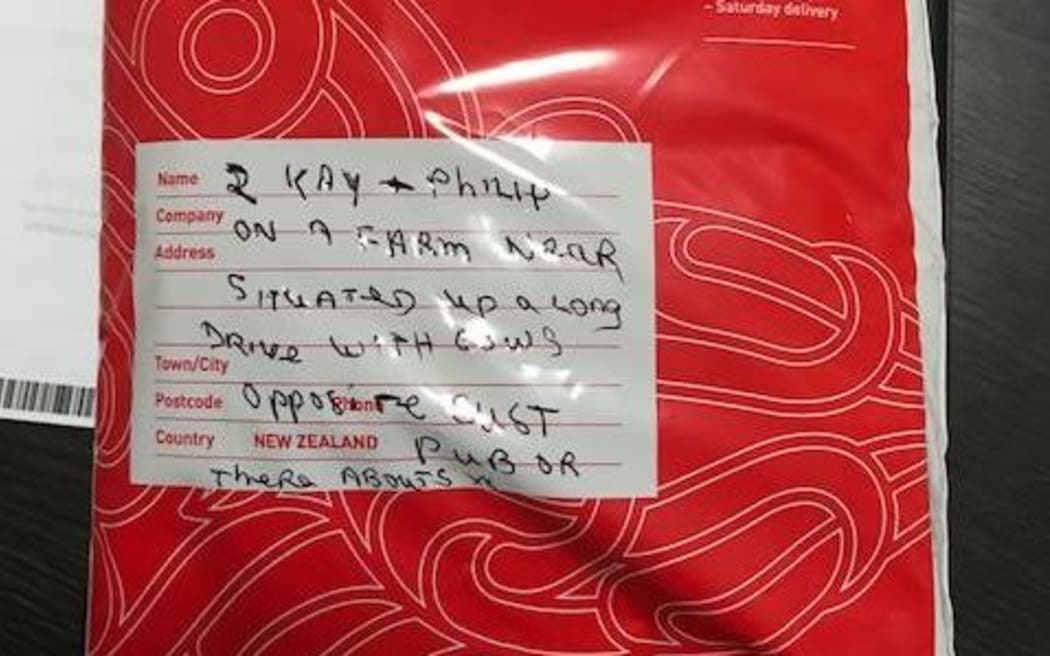 – Saturday delivery
Name 2 KAY + PHILIP
Company
ON A FARM NEAR
Address
SITUATED UP A LONG
DRIVE WITH COWS
Town/City
Postcode OPPOSITE CUST
Phone
Country NEW ZEALAND PUB OR
THERE ABOUTS